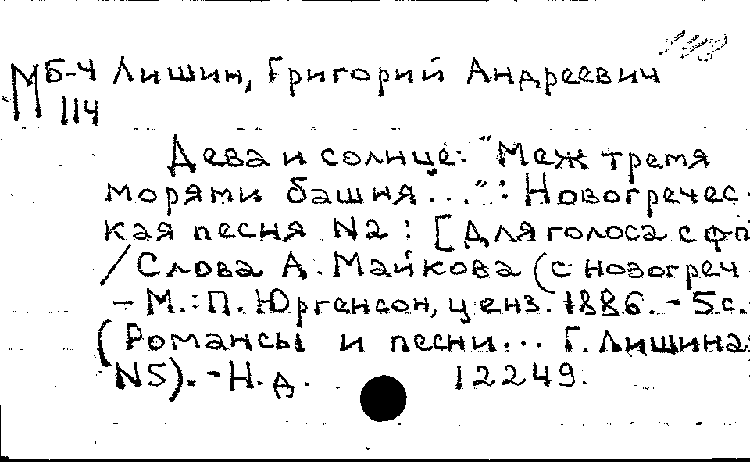 М Б-4 Лишин, Григорий Андреевич
114
Дева и солнце: "Меж тремя
морями башня...": Новогречес-
кая песня N2: [Для голоса с фп
/Слова А. Майкова (с новогреч
- М.: П. Юргенсон, ценз. 1886. - 5 с.
(Романсы и песни... Г. Лишина
N5). - Н. д. 12249.